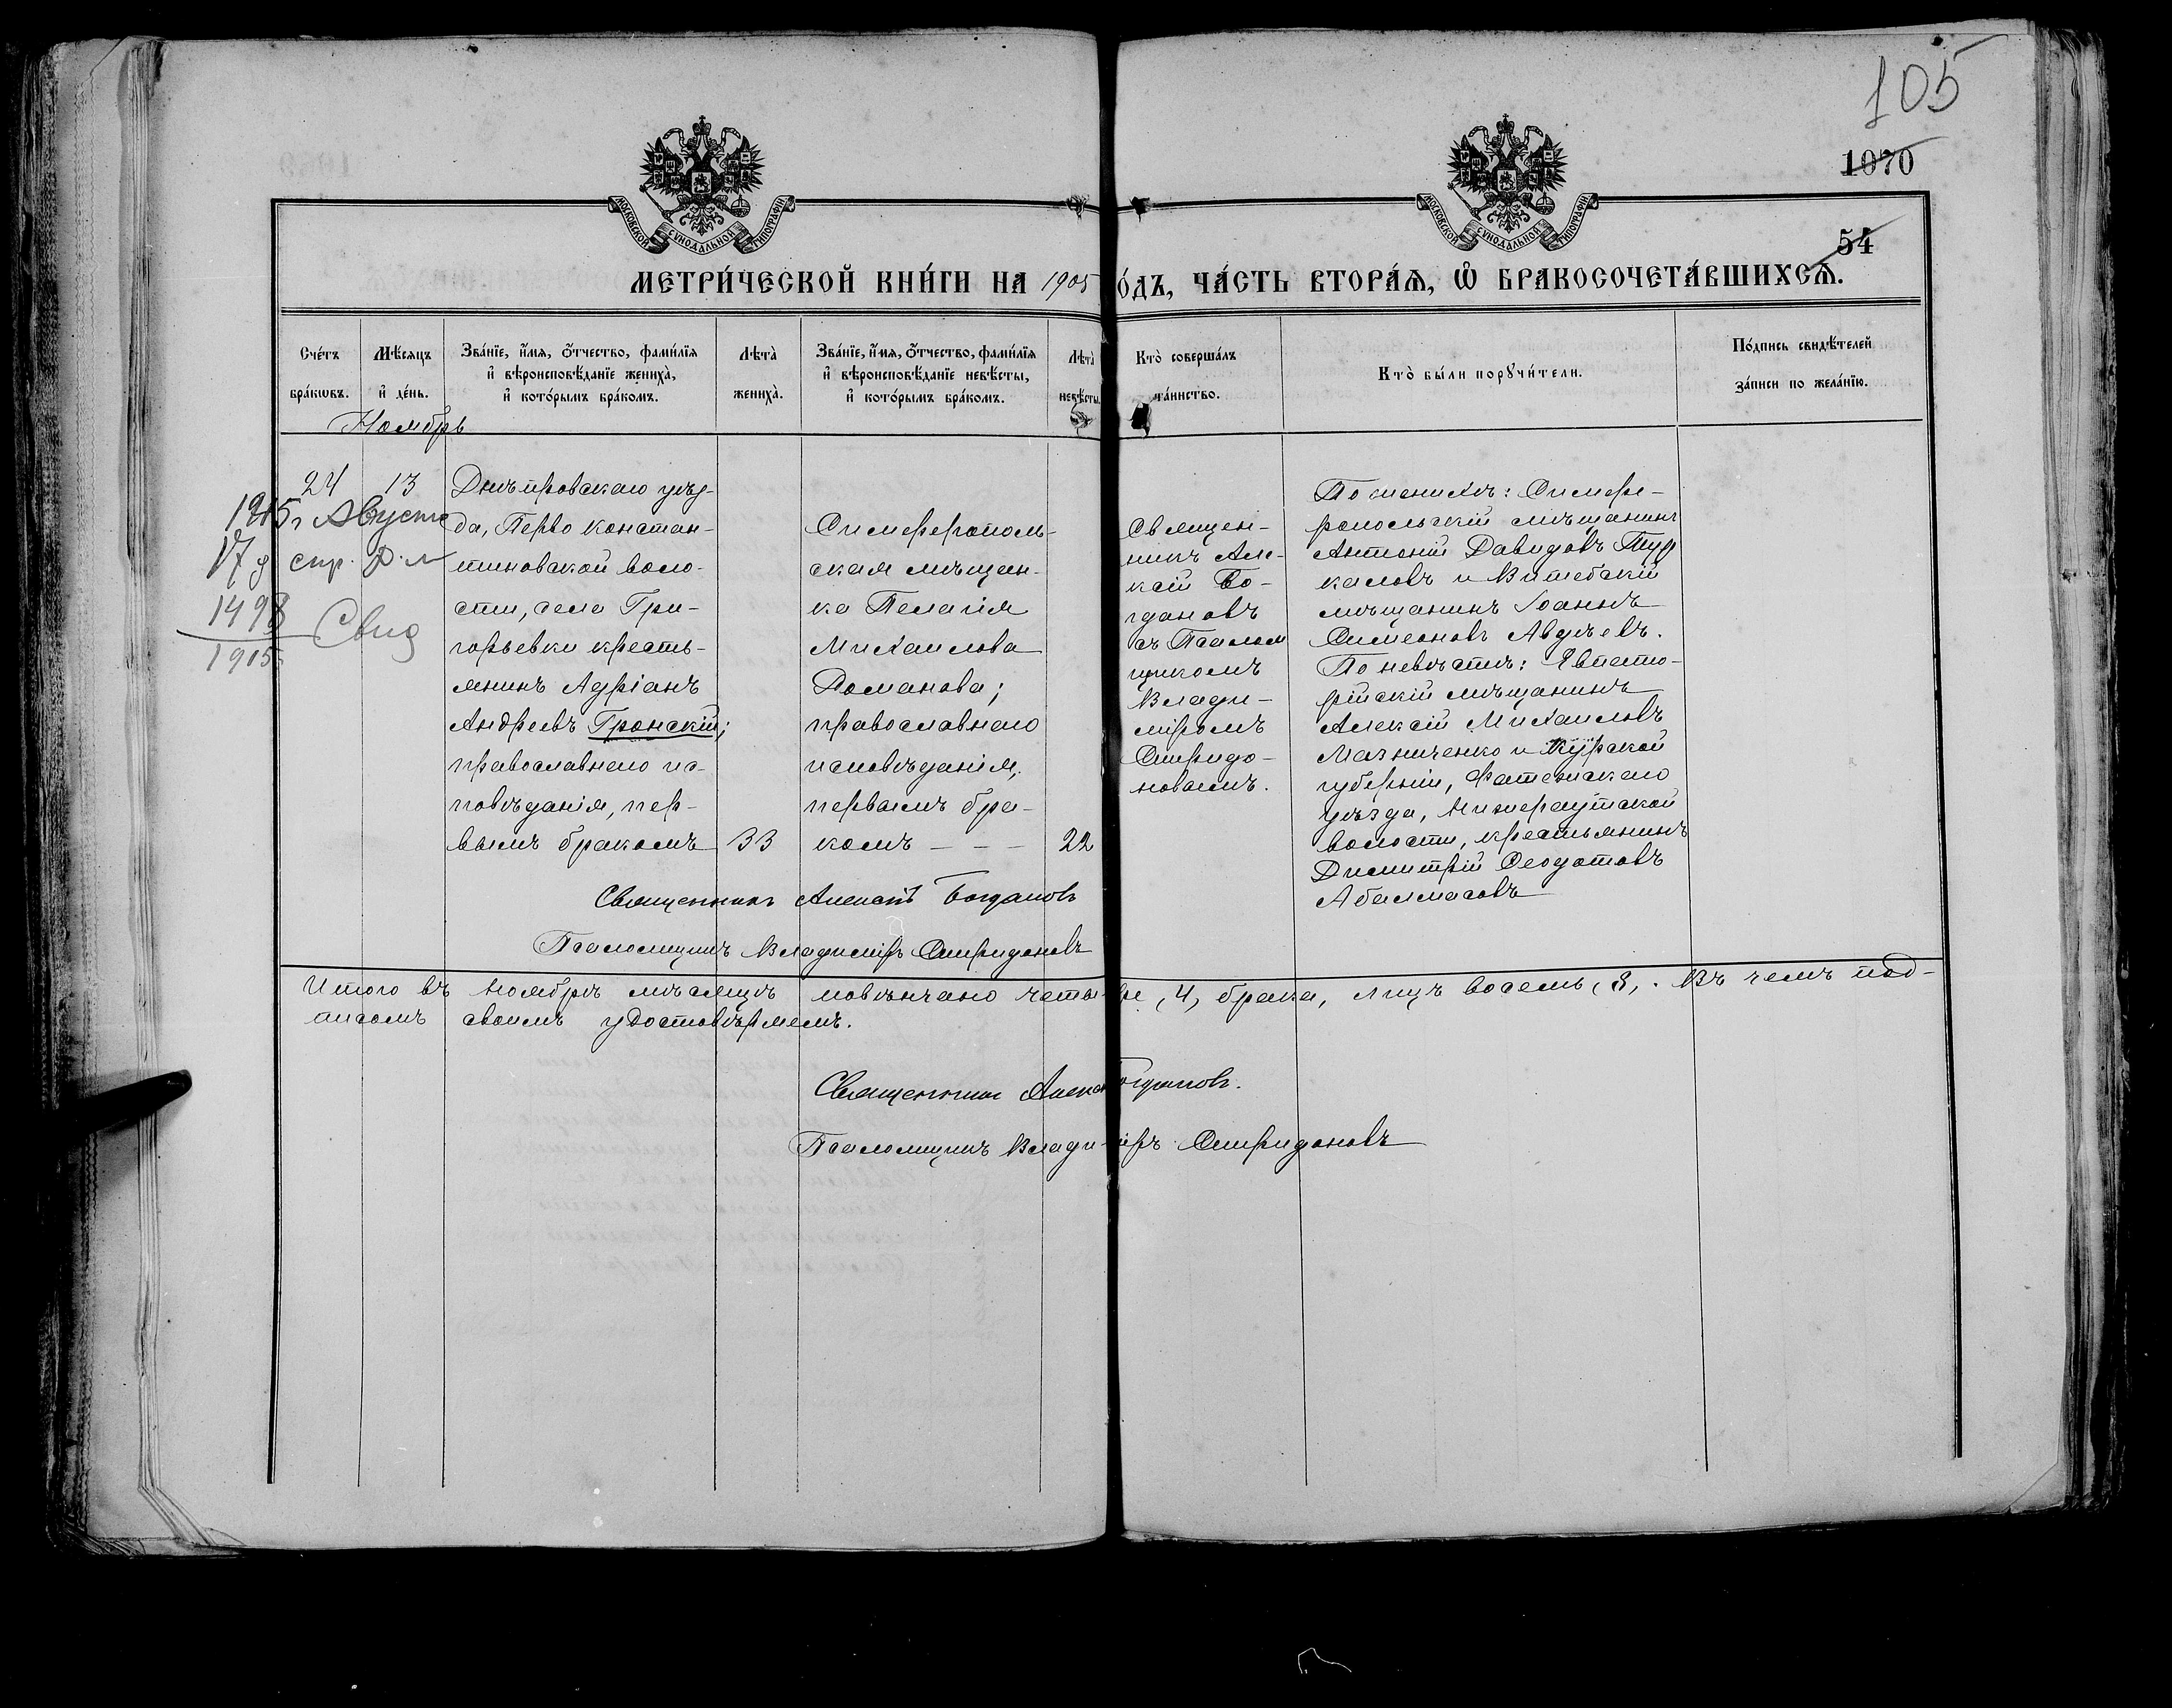 105
1070
54
МОСКОВСКОЙ СУНОДАЛЬНОЙ ТИПОГРАФІИ
МОСКОВСКОЙ СУНОДАЛЬНОЙ ТИПОГРАФІИ
МЕТРИ́ЧЕСКОЙ КНИ́ГИ НА 1905 О́ДЪ, ЧА́СТЬ ВТОРА́Ѧ, Ѽ БРАКОСОЧЕТА́ВШИХСѦ.
Сче́тъ
бра́кѡвъ.
Мѣ́сяцъ
и де́нь.
Зва́нїе, и́мѧ, ѻ́тчество, фами́лїѧ
и вѣроисповѣ́данїе жениха̀,
и кото́рымъ бра́комъ.
Лѣта̀
жениха̀.
Зва́нїе, и́мѧ, ѻ́тчество, фами́лїѧ
и вѣроисповѣ́данїе невѣ́сты,
и кото́рымъ бра́комъ.
Лѣта̀
невѣ́сты.
Кто̀ соверша́лъ
та́инство.
Кто̀ бы́ли порꙋчи́тели.
По́дпись свидѣ́телей
за́писи по жела́нїю.
Ноябрь
24
13
1915 г Августа
17 д спр.
1498
1915
Свид
Днѣпровскаго уѣз-
да, Перво Констан-
тиновской воло-
сти, села Гри-
горьевки кресть-
янинъ Адріанъ
Андреевъ Гронскій;
православнаго ис-
повѣданія, пер-
вымъ бракомъ
33
Симферополь-
ская мѣщан-
ка Пелагія
Михаилова
Романова;
православнаго
исповѣданія,
первымъ бра-
комъ — — —
22
Священ-
никъ Але-
ксій Бо-
гдановъ
съ Псалом
щикомъ
Влади-
міромъ
Спиридо-
новымъ.
По женихѣ: Симфе-
ропольскій мѣщанинъ
Антоній Давидовъ
каловъ и Витебскій
мѣщанинъ Іоаннъ
Симеоновъ Авдѣевъ.
По невѣстѣ: Евпато-
рійскій мѣщанинъ
Алексій Михаиловъ
Мазниченко и Курской
губерніи, Фатежскаго
уѣзда, Нижереутской
волости, крестьянинъ
Димитрій Ѳеодотовъ
Абалмасовъ
Священникъ Алексій Богдановъ
Псаломщикъ Владиміръ Спиридоновъ
Итого въ ноябрѣ мѣсяцѣ повѣнчано четыре, 4, брака, лицъ восемь, 8,. Въ чемъ под-
писомъ своимъ удостовѣряемъ.
Священникъ Алексій Богдановъ.
Псаломщикъ Владиміръ Спиридоновъ